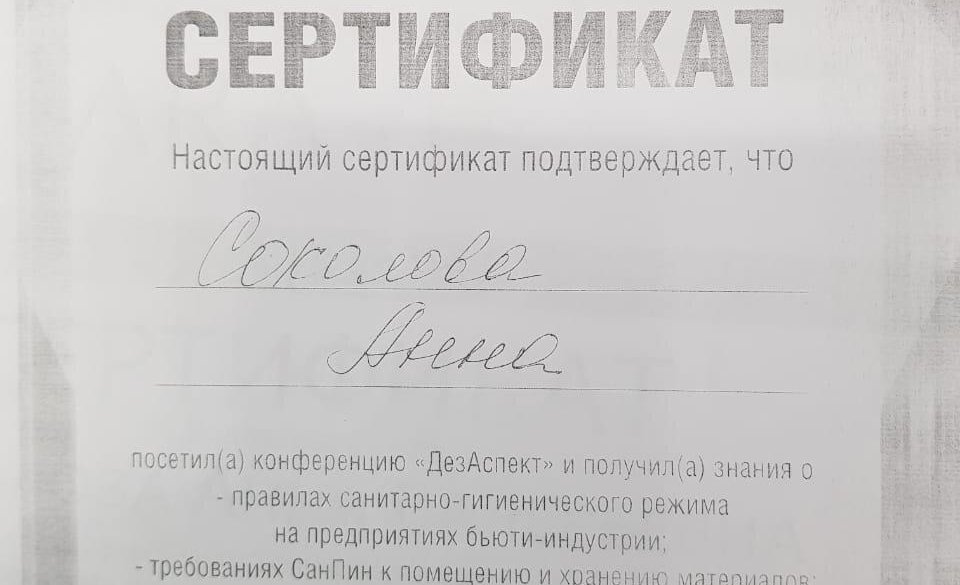 СЕРТИФИКАТ
Настоящий сертификат подтверждает, что
Соколова
Анна
посетил(а) конференцию «ДезАспект» и получил(а) знания о
- правилах санитарно-гигиенического режима
на предприятиях бьюти-индустрии;
- требованиях СанПин к помещению и хранению материалов;